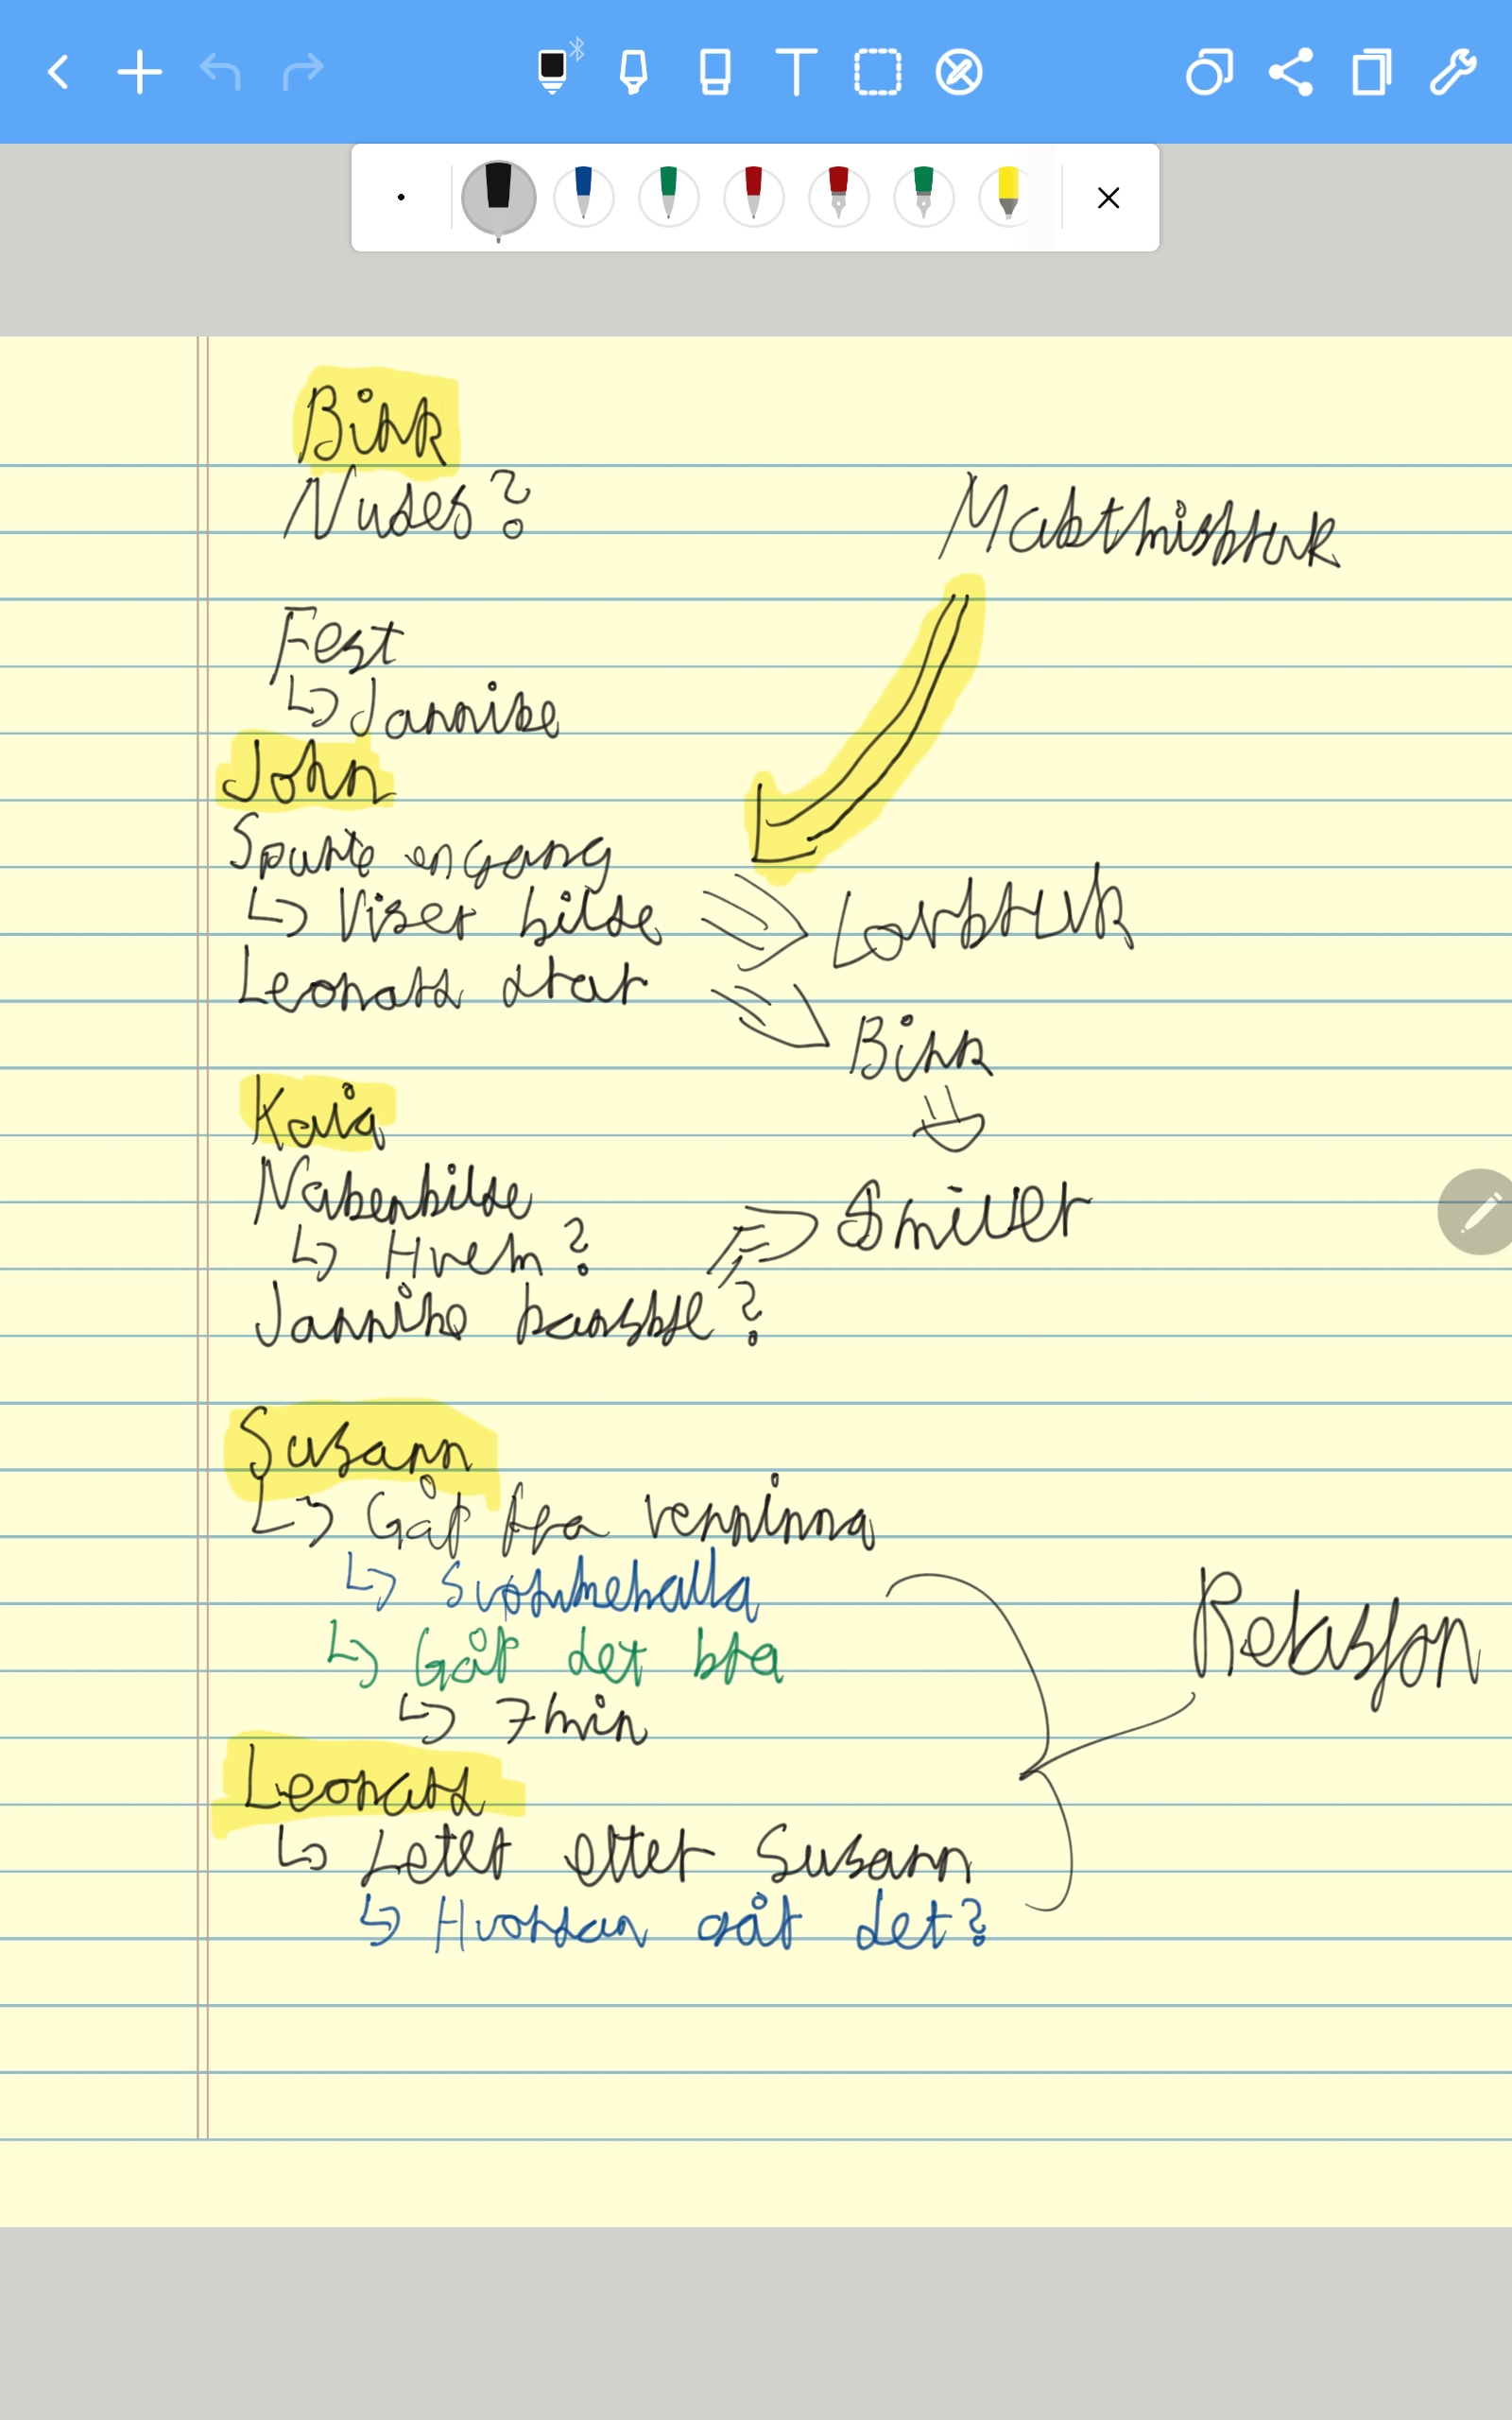 Birk
Nudes?
Maktmisbruk
Fest
↳ Jannike
John
Spurte en gang
↳ Viser bilde
Lovbrudd
Leonard drar
Birk
Kaia
Nakenbilde
↳ Hvem?
Smiler
Jannike kanskje?
Susann
↳ Går fra venninna
↳ Svømmehalla
↳ Går det bra
↳ 7 min
Relasjon
Leonard
↳ Leter etter Susann
↳ Hvordan går det?